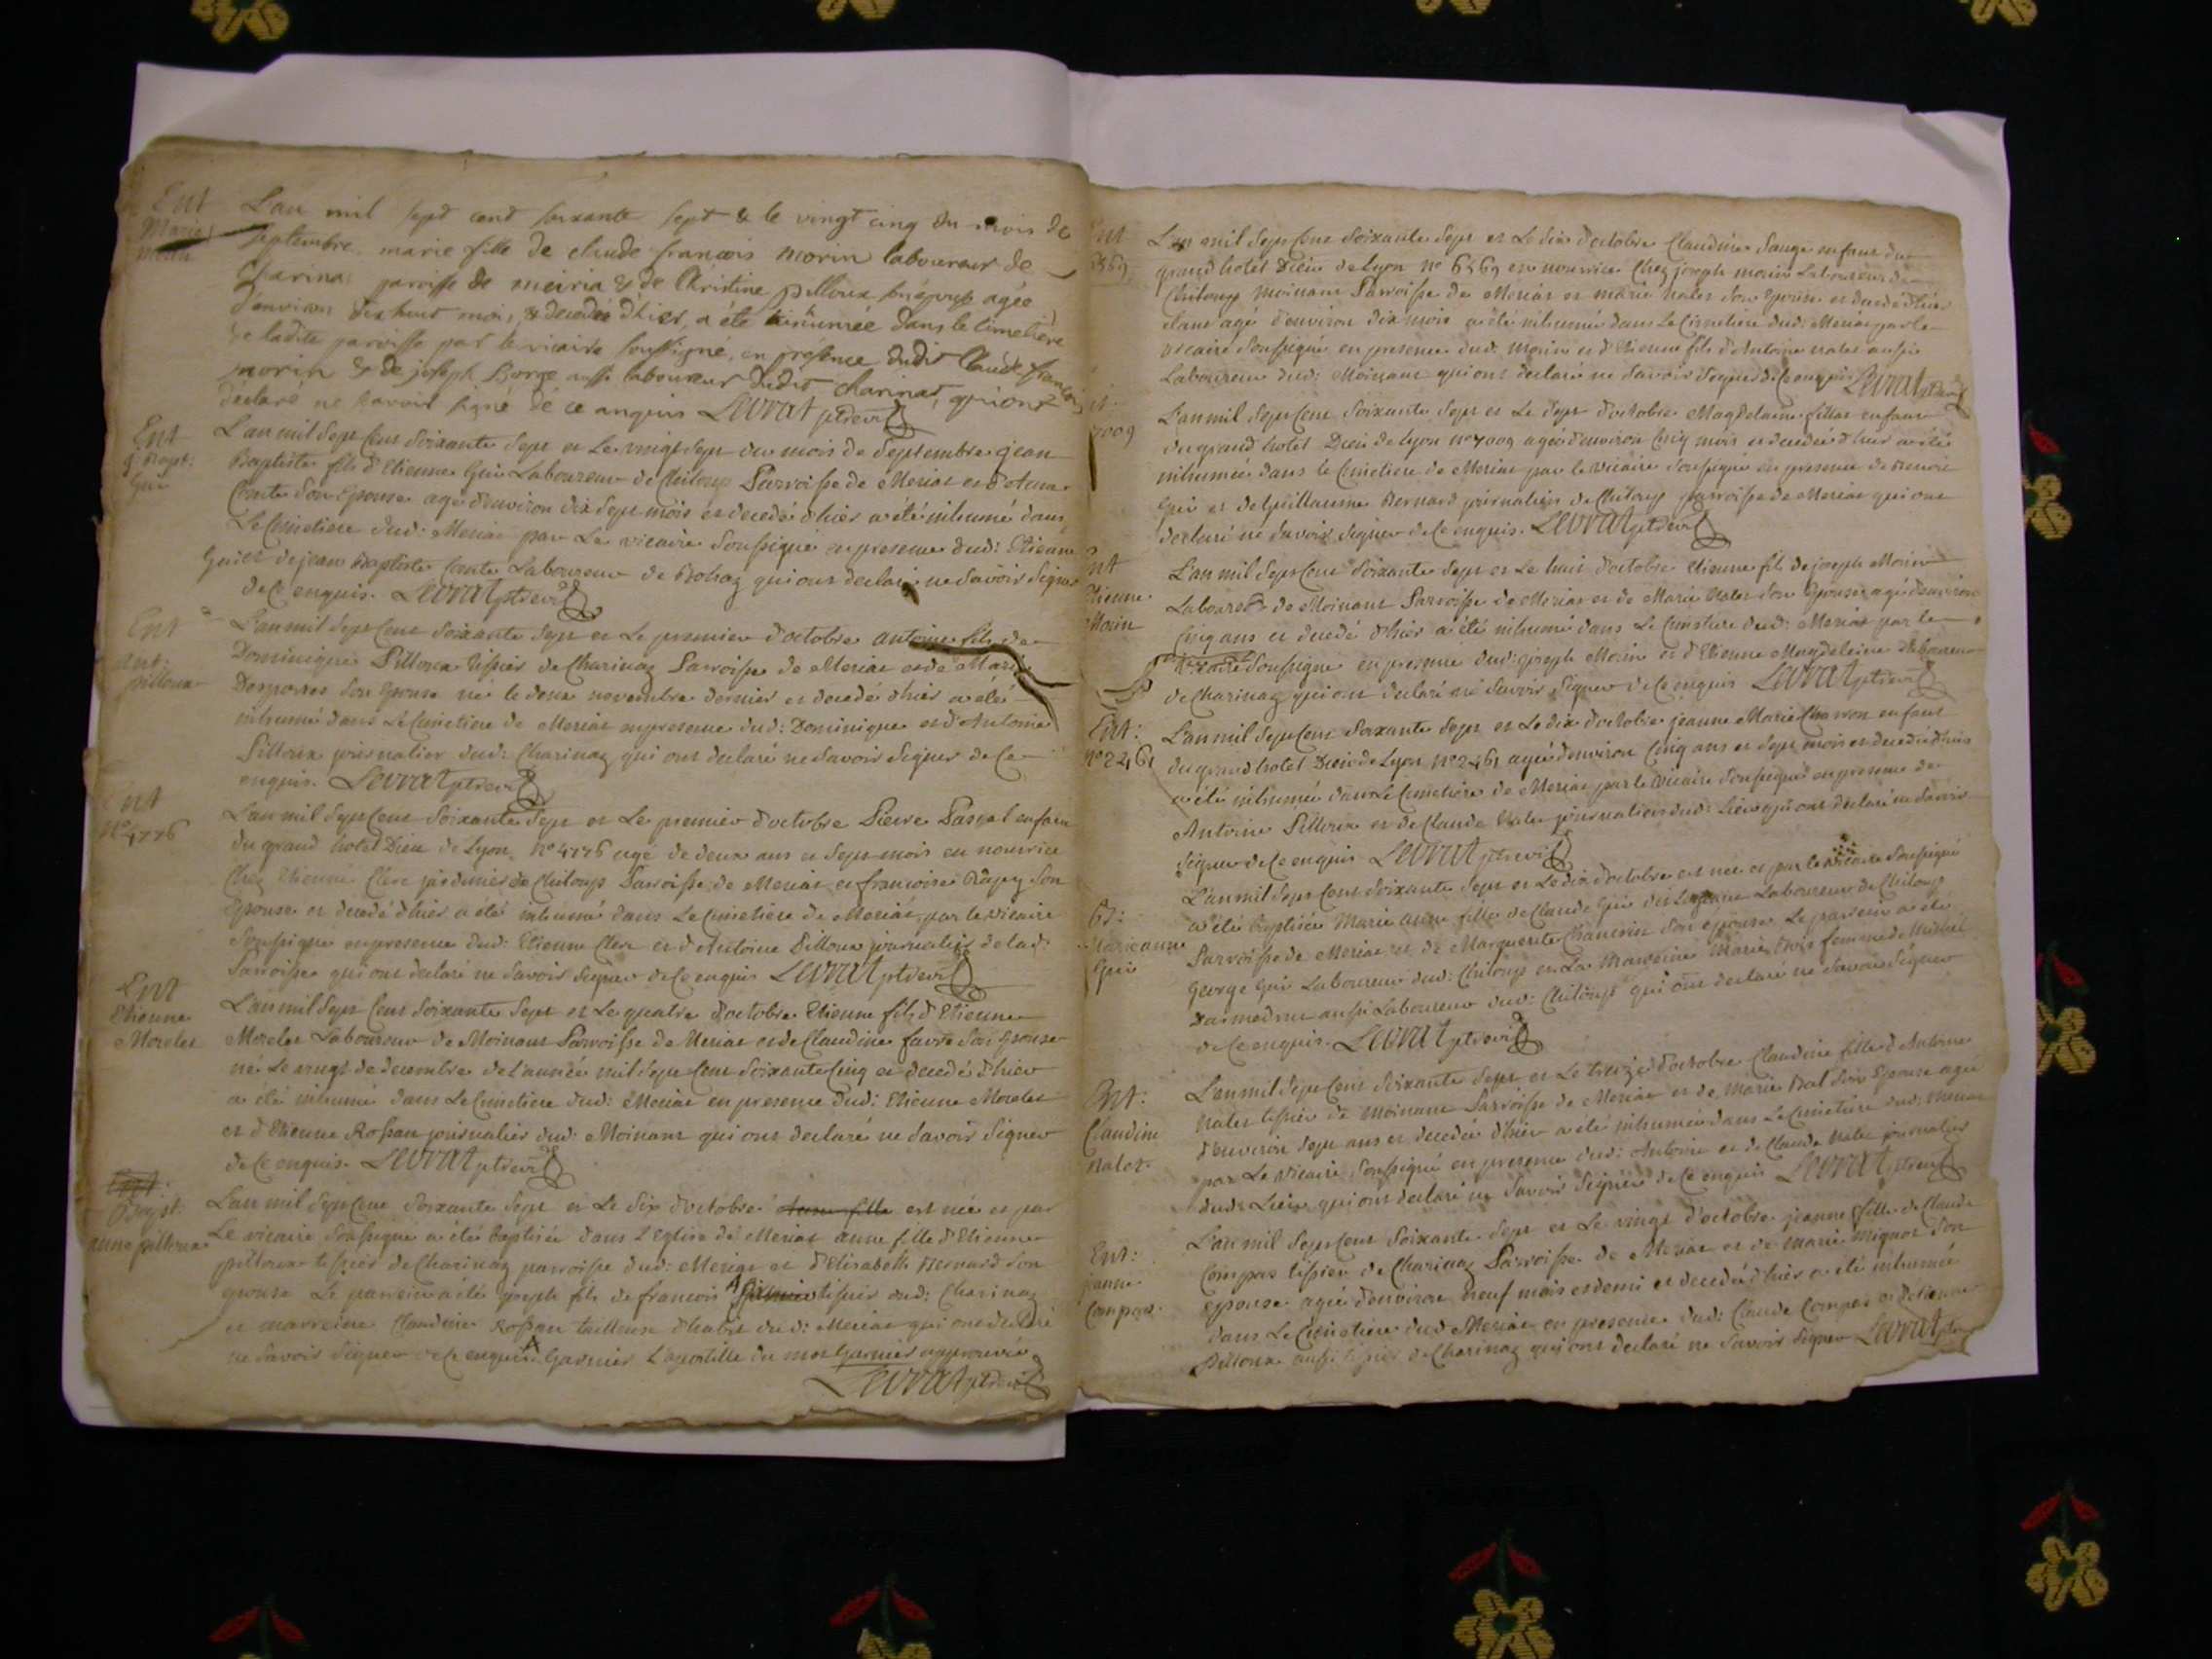 Ent
Marie
morin
L'an mil sept cent soixante sept & le vingt cinq du mois de
septembre marie fille de claude françois morin laboureur de
Charina paroisse de meiria & de Christine pilloux son épouse agée
d'environ dix huit mois, & decedée d'hier, a été inhumée dans le cimetière
de ladite paroisse par le vicaire soussigné, en présence dudit Claude françois
morin & de joseph Borge aussi laboureur dudit charinas, qui ont
déclaré ne savoir signé de ce anquis Levrat ptre vic
Ent
j Bapt:
Gui
L'an mil sept Cent soixante sept et Le vingt sept du mois de septembre jean
Baptiste fils d'Etienne Gui Laboureur de Chiloup Parroisse de Meriat et d'
Comte son Epouse agé d'environ dix sept mois et decedé d'hier a été inhumé dans
Le Cimetiere dud: Meriat par Le vicaire soussigné en presence dud: Etienne
Gui et de jean Baptiste Comte Laboureur de Bohaz qui ont declaré ne savoir signer
de Ce enquis. Levrat ptre vic
Ent
ant:
pilloux
L'an mil sept Cent soixante sept et Le premier d'octobre antoine fils de
Dominique Pilloux tissier de Charinaz Parroisse de Meriat et de Marie
Desporres son Epouse né le deux novembre dernier et decedé d'hier a été
inhumé dans Le Cimetiere de Meriat en presence dud: Dominique et d'Antoine
Pilloux journalier dud: Charinaz qui ont declaré ne savoir signer de Ce
enquis. Levrat ptre vic
Ent
no 4776
L'an mil sept Cent soixante sept et Le premier d'octobre Pierre Pascal enfant
du grand hotel Dieu de Lyon no 4776 agé de deux ans et sept mois en nourrice
Chez Etienne Clerc jardinier de Chiloup Parroisse de Meriat et francoise Ragey son
Epouse et decedé d'hier a été inhumé dans Le Cimetiere de Meriat par le vicaire
soussigné en presence dud: Etienne Clerc et d'Antoine Pilloux journalier de lad:
Parroisse qui ont declaré ne savoir signer de Ce enquis Levrat ptre vic
Ent
Etienne
Morelet
L'an mil sept Cent soixante sept et Le quatre d'octobre Etienne fils d'Etienne
Morelet Laboureur de Moinant Parroisse de Meriat et de Claudine favre son Epouse
né Le vingt de decembre de l'année mil sept Cent soixante Cinq et decedé d'hier
a été inhumé dans Le Cimetiere dud: Meriat en presence dud: Etienne Morelet
et d'Etienne Rossan journalier dud: Moinant qui ont declaré ne savoir signer
de Ce enquis. Levrat ptre vic
Ent:
Bapt:
anne pilloux
L'an mil sept Cent soixante sept et Le six d'octobre anne fille est née et par
Le vicaire soussigné a été baptisée dans L'eglise de Meriat anne fille d'Etienne
pilloux tissier de Charinaz parroisse dud: Meriat et d'Elisabeth Bernard son
epouse Le parrein a été joseph fils de francois tissier dud: Charinaz
et marreine Claudine Rossan tailleuse d'habit dud: Meriat qui ont declaré
ne savoir signer de Ce enquis. Garnier L'apostille du mot Garnier approuvée
Levrat ptre vic
Ent
6569
L'an mil sept Cent soixante sept et Le six d'octobre Claudine Sange enfant du
grand hotel Dieu de Lyon no 6569 en nourrice Chez joseph morin Laboureur de
Chiloup Moinant Parroisse de Meriat et marie Nalet son Epouse et decedé d'hier
etant agé d'environ dix mois a été inhumé dans Le Cimetiere dud: Meriat par le
vicaire soussigné en presence dud: morin et d'Etienne fils d'Antoine Nalet aussi
Laboureur dud: Moinant qui ont declaré ne savoir signer de Ce enquis Levrat ptre vic
7009
L'an mil sept Cent soixante sept et Le sept d'octobre Magdelaine fillat enfant
du grand hotel Dieu de Lyon no 7009 agée d'environ Cinq mois et decedée d'hier a été
inhumée dans le Cimetiere de Meriat par le vicaire soussigné en presence de Benoit
Gui et de Guillaume Bernard journalier de Chiloup parroisse de Meriat qui ont
declaré ne savoir signer de Ce enquis. Levrat ptre vic
Ent
Etienne
Morin
L'an mil sept Cent soixante sept et Le huit d'octobre Etienne fils de joseph Morin
Laboureur de Moinant Parroisse de Meriat et de Marie Nalet son Epouse agé d'environ
Cinq ans et decedé d'hier a été inhumé dans Le Cimetiere dud: Meriat par le
vicaire soussigné en presence dud: joseph Morin et d'Etienne Magdeleine Laboureur
de Charinaz qui ont declaré ne savoir signer de Ce enquis Levrat ptre vic
Ent:
no 2461
L'an mil sept Cent soixante sept et Le dix d'octobre jeanne Marie Charron enfant
du grand hotel Dieu de Lyon no 2461 agée d'environ Cinq ans et sept mois et decedée d'hier
a été inhumée dans Le Cimetiere de Meriat par le vicaire soussigné en presence de
Antoine Pilloux et de Claude Nalet journaliers dud: Lieu qui ont declaré ne savoir
signer de Ce enquis Levrat ptre vic
Bt:
Marie anne
Gui
L'an mil sept Cent soixante sept et Le dix d'octobre est née et par le vicaire soussigné
a été baptisée Marie anne fille de Claude Gui Laboureur de Chiloup
Parroisse de Meriat et de Marguerite Chanerin son epouse Le parrein a été
George Gui Laboureur dud: Chiloup et La Marreine Marie femme de Michel
aussi Laboureur dud: Chiloup qui ont declaré ne savoir signer
de Ce enquis. Levrat ptre vic
Ent:
Claudine
Nalet
L'an mil sept Cent soixante sept et Le treize d'octobre Claudine fille d'Antoine
Nalet tissier de Moinant Parroisse de Meriat et de Marie Bal son Epouse agée
d'environ sept ans et decedée d'hier a été inhumée dans Le Cimetiere dud: Meriat
par Le vicaire soussigné en presence dud: Antoine et de Claude Nalet journalier
dud: Lieu qui ont declaré ne savoir signer de Ce enquis Levrat ptre vic
Ent:
janne
Compas
L'an mil sept Cent soixante sept et Le vingt d'octobre jeanne fille de Claude
Compas tissier de Charinaz Parroisse de Meriat et de Marie Mignot son
Epouse agée d'environ neuf mois et demi et decedée d'hier a été inhumée
dans Le Cimetiere dud: Meriat en presence dud: Claude Compas et d'Etienne
Pilloux aussi tissier de Charinaz qui ont declaré ne savoir signer Levrat ptre